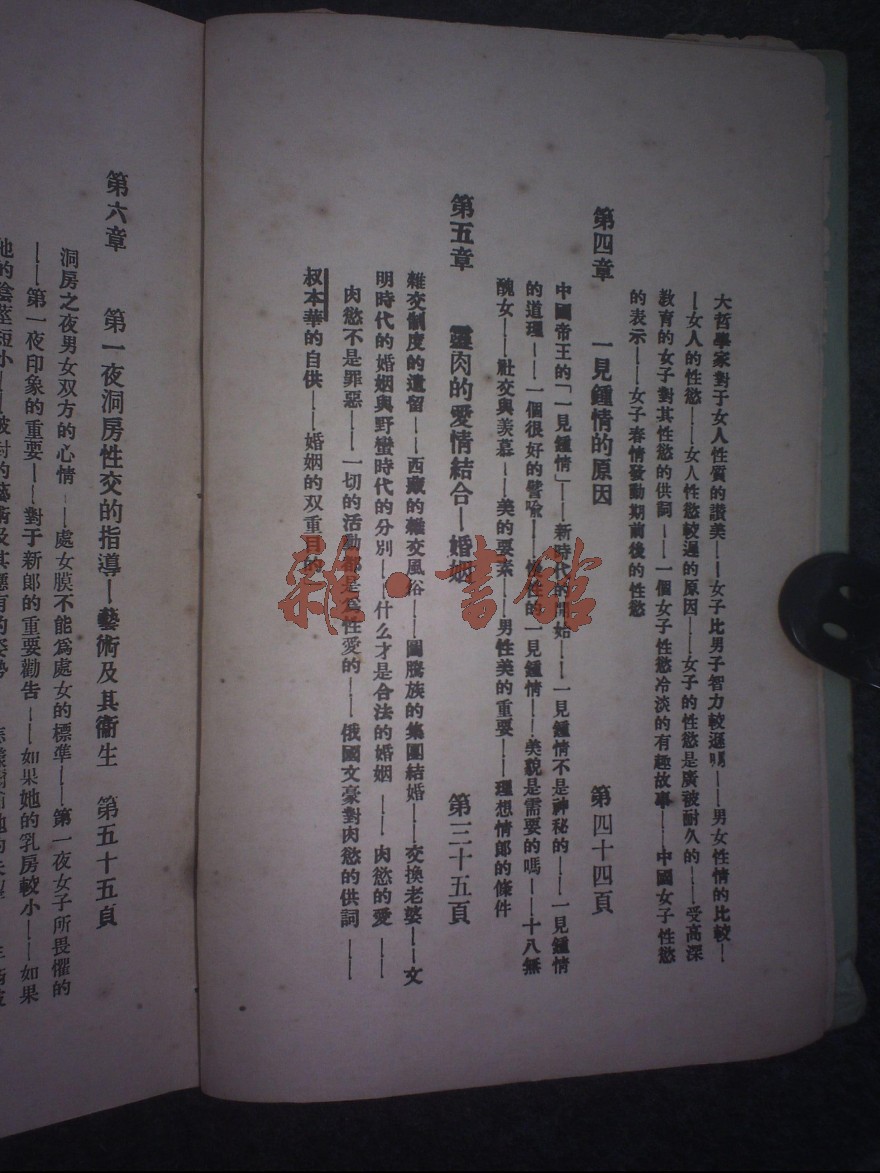 大哲學家對于女人性質的讚美——女子比男子智力較遜嗎——男女性情的比較—
—女人的性慾——女人性慾較遜的原因——女子的性慾是廣被耐久的——受高深
教育的女子對其性慾的供詞——一個女子性慾冷淡的有趣故事——中國女子性慾
的表示——女子春情發動期前後的性慾
第四章 一見鍾情的原因 第四十四頁
中國帝王的「一見鍾情」——新時代的開始——一見鍾情不是神秘的——一見鍾情
的道理——一個很好的譬喻——性的一見鍾情——美貌是需要的嗎——十八無
醜女——社交與羨慕——美的要素——男性美的重要——理想情郎的條件
第五章 靈肉的愛情結合—婚姻 第三十五頁
雜交制度的遺留——西藏的雜交風俗——圖騰族的集團結婚——交換老婆——文
明時代的婚姻與野蠻時代的分別——什么才是合法的婚姻——肉慾的愛——
肉慾不是罪惡——一切的活動都是為性愛的——俄國文豪對肉慾的供詞——
叔本華的自供——婚姻的双重目的
雜·書館
第六章 第一夜洞房性交的指導—藝術及其衞生 第五十五頁
洞房之夜男女双方的心情——處女膜不能爲處女的標準——第一夜女子所畏懼的
——第一夜印象的重要——對于新郎的重要勸告——如果她的乳房較小——如果
他的陰莖短小——